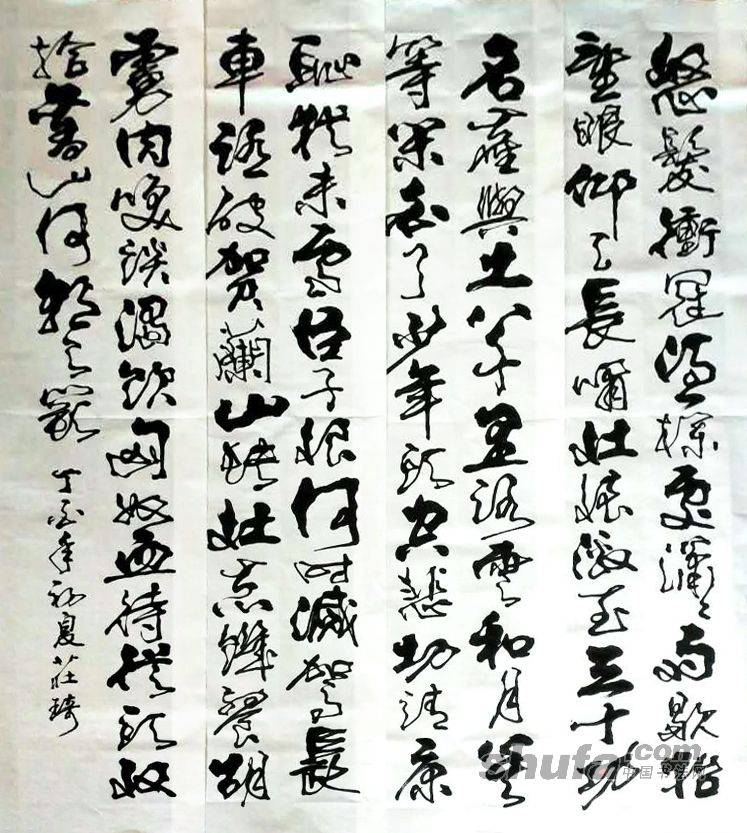 怒髮衝冠憑欄處瀟〻雨歇抬
望眼仰天長嘯壯懷激烈三十功
名塵與土八千里路雲和月莫
等閑白了少年頭空悲切靖康
恥猶未雪臣子恨何時滅駕長
車踏破賀蘭山缺壯志饑餐胡
虜肉笑談渴飲匈奴血待從頭收
拾舊山河朝天闕 丁酉年初夏莊琦
shufa.com
中国书法网